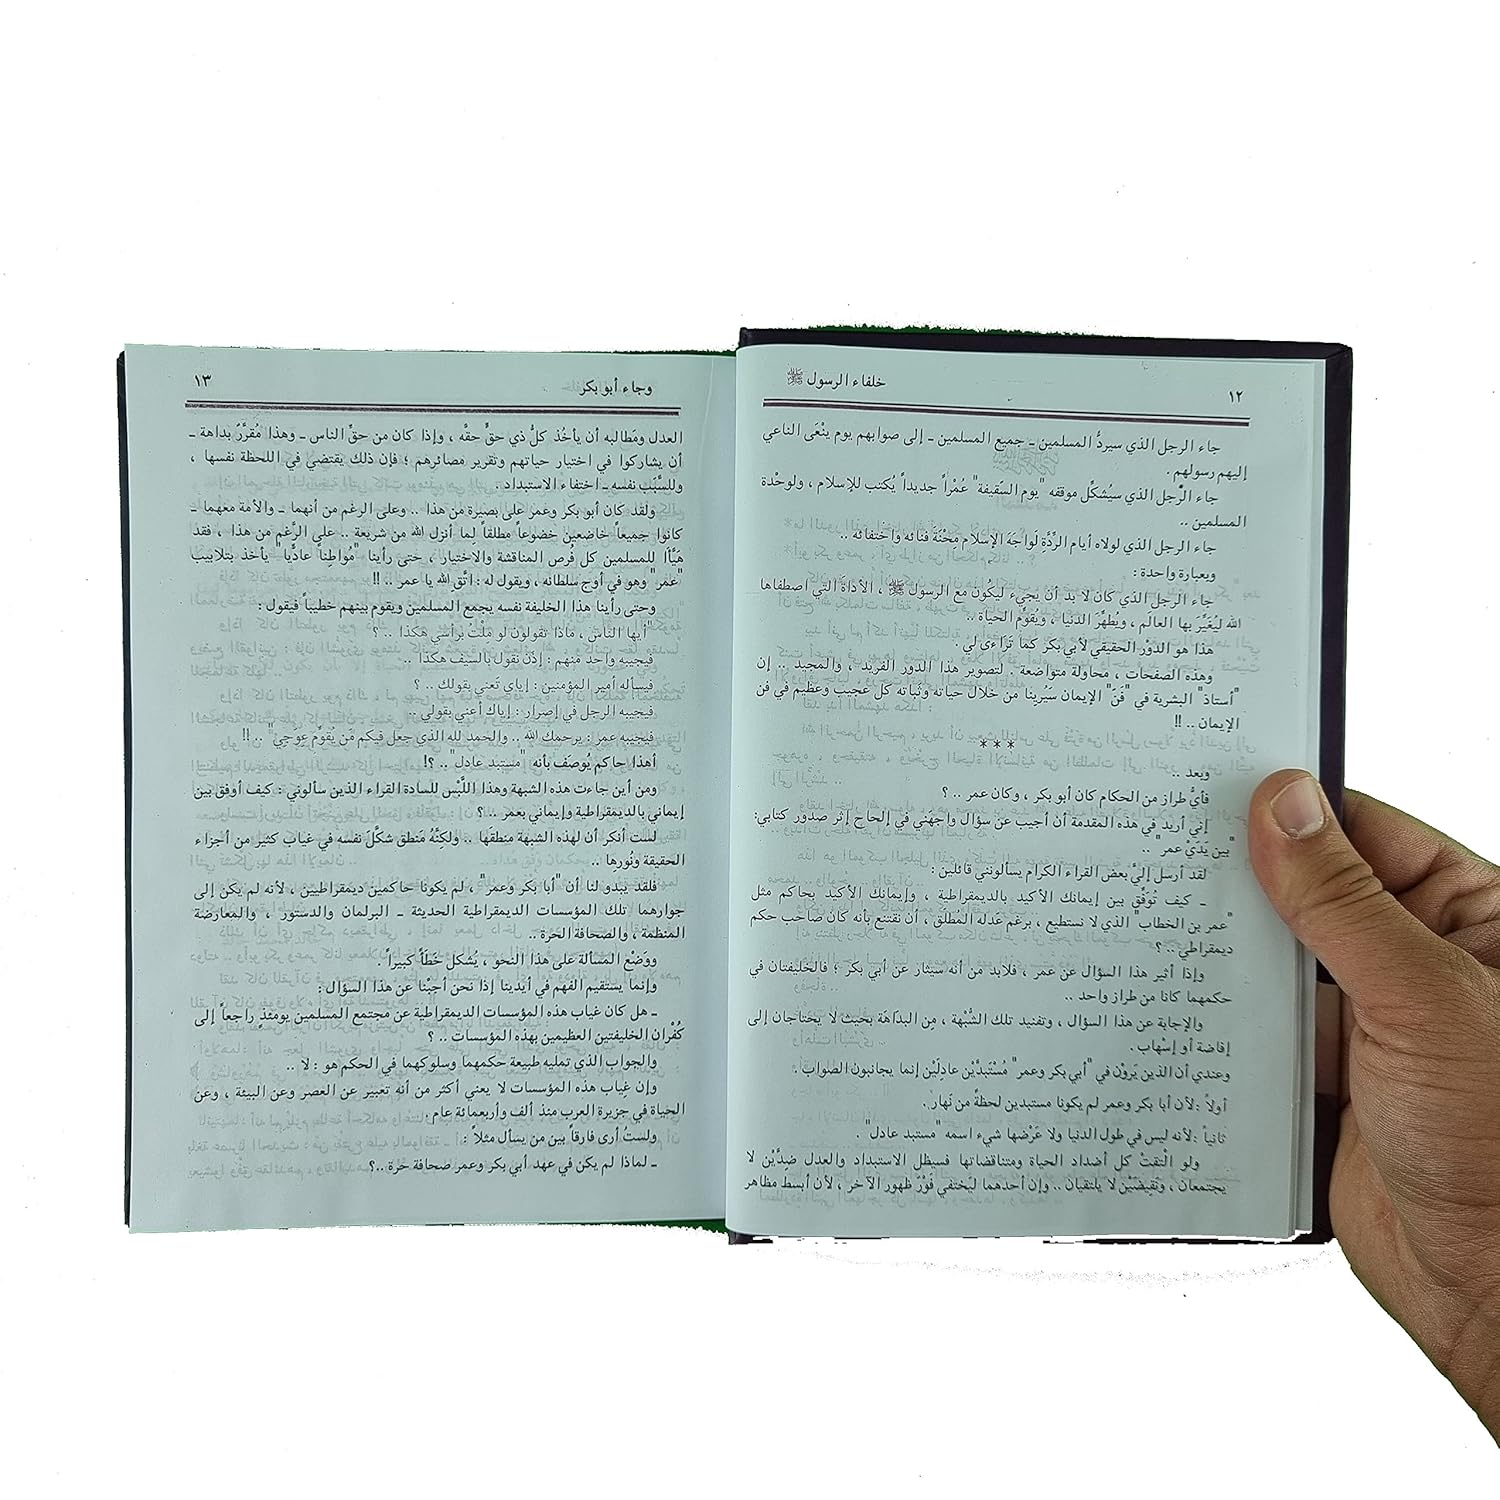 ١٢
خلفاء الرسول ﷺ
جاء الرجل الذي سيردُّ المسلمين ـ جميع المسلمين ـ إلى صوابهم يوم ينْعَى الناعي
إليهم رسولهم .
جاء الرَّجل الذي سيُشكِّل موقفه "يوم السَّقيفة" عُمْراً جديداً يُكتب للإسلام ، ولوحْدة
المسلمين ..
جاء الرجل الذي لولاه أيام الرِّدَّة لَواجَهَ الإسلام مِحْنَةَ فنائه واختفائه ..
وبعبارة واحدة :
جاء الرجل الذي كان لا بد أن يَجيء ليكُون مع الرسول ﷺ ، الأداة التي اصطفاها
الله ليُغَيِّرَ بها العالَم ، ويُطهِّرَ الدنيا ، ويُقوِّم الحياة ..
هذا هو الدَّوْر الحقيقي لأبي بكر كما تَرَاءى لي .
وهذه الصفحات ، محاولة متواضعة . لتصوير هذا الدور الفريد ، والمجيد .. إن
"أستاذ" البشرية في "فَنِّ" الإيمان سَيُرينا من خلال حياته وثَباته كلَّ عجيب وعظيم في فن
الإيمان .. !!
***
وبعد ..
فأيُّ طراز من الحكام كان أبو بكر ، وكان عمر .. ؟
إني أريد في هذه المقدمة أن أجيب عن سؤال واجهني في إلحاح إثر صدور كتابي:
"بين يَدَيْ عمر" ..
لقد أرسل إليّ بعض القراء الكرام يسألونني قائلين :
ـ كيف تُوَفِّق بين إيمانك الأكيد بالديمقراطية ، وإيمانك الأكيد بحاكم مثل
"عمر بن الخطاب" الذي لا نستطيع ، برغم عَدله المُطلق ، أن نقْتنع بأنه كان صاحب حكم
ديمقراطي .. ؟
وإذا أثير هذا السؤال عن عمر ، فلابد من أنه سيثار عن أبي بكر ؛ فالخليفتان في
حكمهما كانا من طراز واحد ..
والإجابة عن هذا السؤال ، وتفنيد تلك الشُّبْهة ، مِن البداهَة بحيث لا يحتاجان إلى
إفاضة أو إسْهاب .
وعندي أن الذين يَرَوْن في "أبي بكر وعمر" مُسْتَبدَّيْن عادِلَيْن إنما يجانبون الصواب .
أولاً : لأن أبا بكر وعمر لم يكونا مستبدين لحظةً من نَهار .
ثانياً : لأنه ليس في طول الدنيا ولا عَرْضها شيء اسمه "مستبد عادل" .
ولو الْتقتْ كل أضداد الحياة ومتناقضاتها فسيظل الاستبداد والعدل ضِدَّيْن لا
يجتمعان ، ونَقِيضَيْن لا يلتقيان .. وإن أحدهما ليَختفي فَوْرَ ظهور الآخر ، لأن أبسط مظاهر
وجاء أبو بكر
١٣
العدل ومَطالبه أن يأخُذ كلُّ ذي حقٍّ حقَّه ، وإذا كان من حقِّ الناس ـ وهذا مُقرَّرٌ بداهة ـ
أن يشاركوا في اختيار حياتهم وتقرير مصائرهم ؛ فإن ذلك يقتضي في اللحظة نفسها ،
وللسَّبَب نفسه ـ اختفاء الاستبداد .
ولقد كان أبو بكر وعمر على بصيرة من هذا .. وعلى الرغم من أنهما ـ والأمة معَهما ـ
كانوا جميعاً خاضعين خضوعاً مطلقاً لِما أنزل الله من شريعة .. على الرَّغم من هذا ، فقد
هَيَّأا للمسلمين كل فُرص المناقشة والاختيار ، حتى رأينا "مُواطِناً عادِّيا" يأخذ بتلابيب
"عمر" وهو في أوج سلطانه ، ويقول له : اتَّق الله يا عمر .. !!
وحتى رأينا هذا الخليفة نفسه يجمع المسلمين ويقوم بينهم خطيباً فيقول :
"أيها الناس ، ماذا تقولون لو مِلْتُ برأسي هكذا .. ؟
فيجيبه واحد منهم : إذَنْ نقول بالسيف هكذا ..
فيسأله أمير المؤمنين : إيايَ تَعني بقولك .. ؟
فيجيبه الرجل في إصرار : إياك أعني بقولي .
فيجيبه عمر : يرحمك الله .. والحمد لله الذي جعل فيكم مَن يُقوِّم عِوَجي" .. !!
أهذا حاكم يُوصَف بأنه "مستبد عادل" .. ؟!
ومن أين جاءت هذه الشبهة وهذا اللَّبْس للسادة القراء الذين سألوني : كيف أوفق بين
إيماني بالديمقراطية وإيماني بعمر .. ؟
لست أنكر أن لهذه الشبهة منطقَها .. ولكِنَّهُ مَنطق شكَّل نفسه في غياب كثير من أجزاء
الحقيقة ونُورِها ..
فلقد يبدو لنا أن "أبا بكر وعمر" ، لم يكونا حاكمين ديمقراطيين ، لأنه لم يكن إلى
جوارهما تلك المؤسسات الديمقراطية الحديثة ـ البرلمان والدستور ، والمعارضة
المنظمة ، والصحافة الحرة ..
ووَضْع المسألة على هذا النحو ، يُشكل خَطَأً كبيراً .
وإنما يستقيم الفهم في أيدينا إذا نحن أجَبْنا عن هذا السؤال :
ـ هل كان غياب هذه المؤسسات الديمقراطية عن مجتمع المسلمين يومئذٍ راجعاً إلى
كُفْران الخليفتين العظيمين بهذه المؤسسات .. ؟
والجواب الذي تمليه طبيعة حكمهما وسلوكهما في الحكم هو : لا ..
وإن غِياب هذه المؤسسات لا يعني أكثر من أنه تعبير عن العصر وعن البيئة ، وعن
الحياة في جزيرة العرب منذ ألف وأربعمائة عام .
ولستُ أرى فارقاً بين من يسأل مثلاً :
ـ لماذا لم يكن في عهد أبي بكر وعمر صحافة حرة ..؟